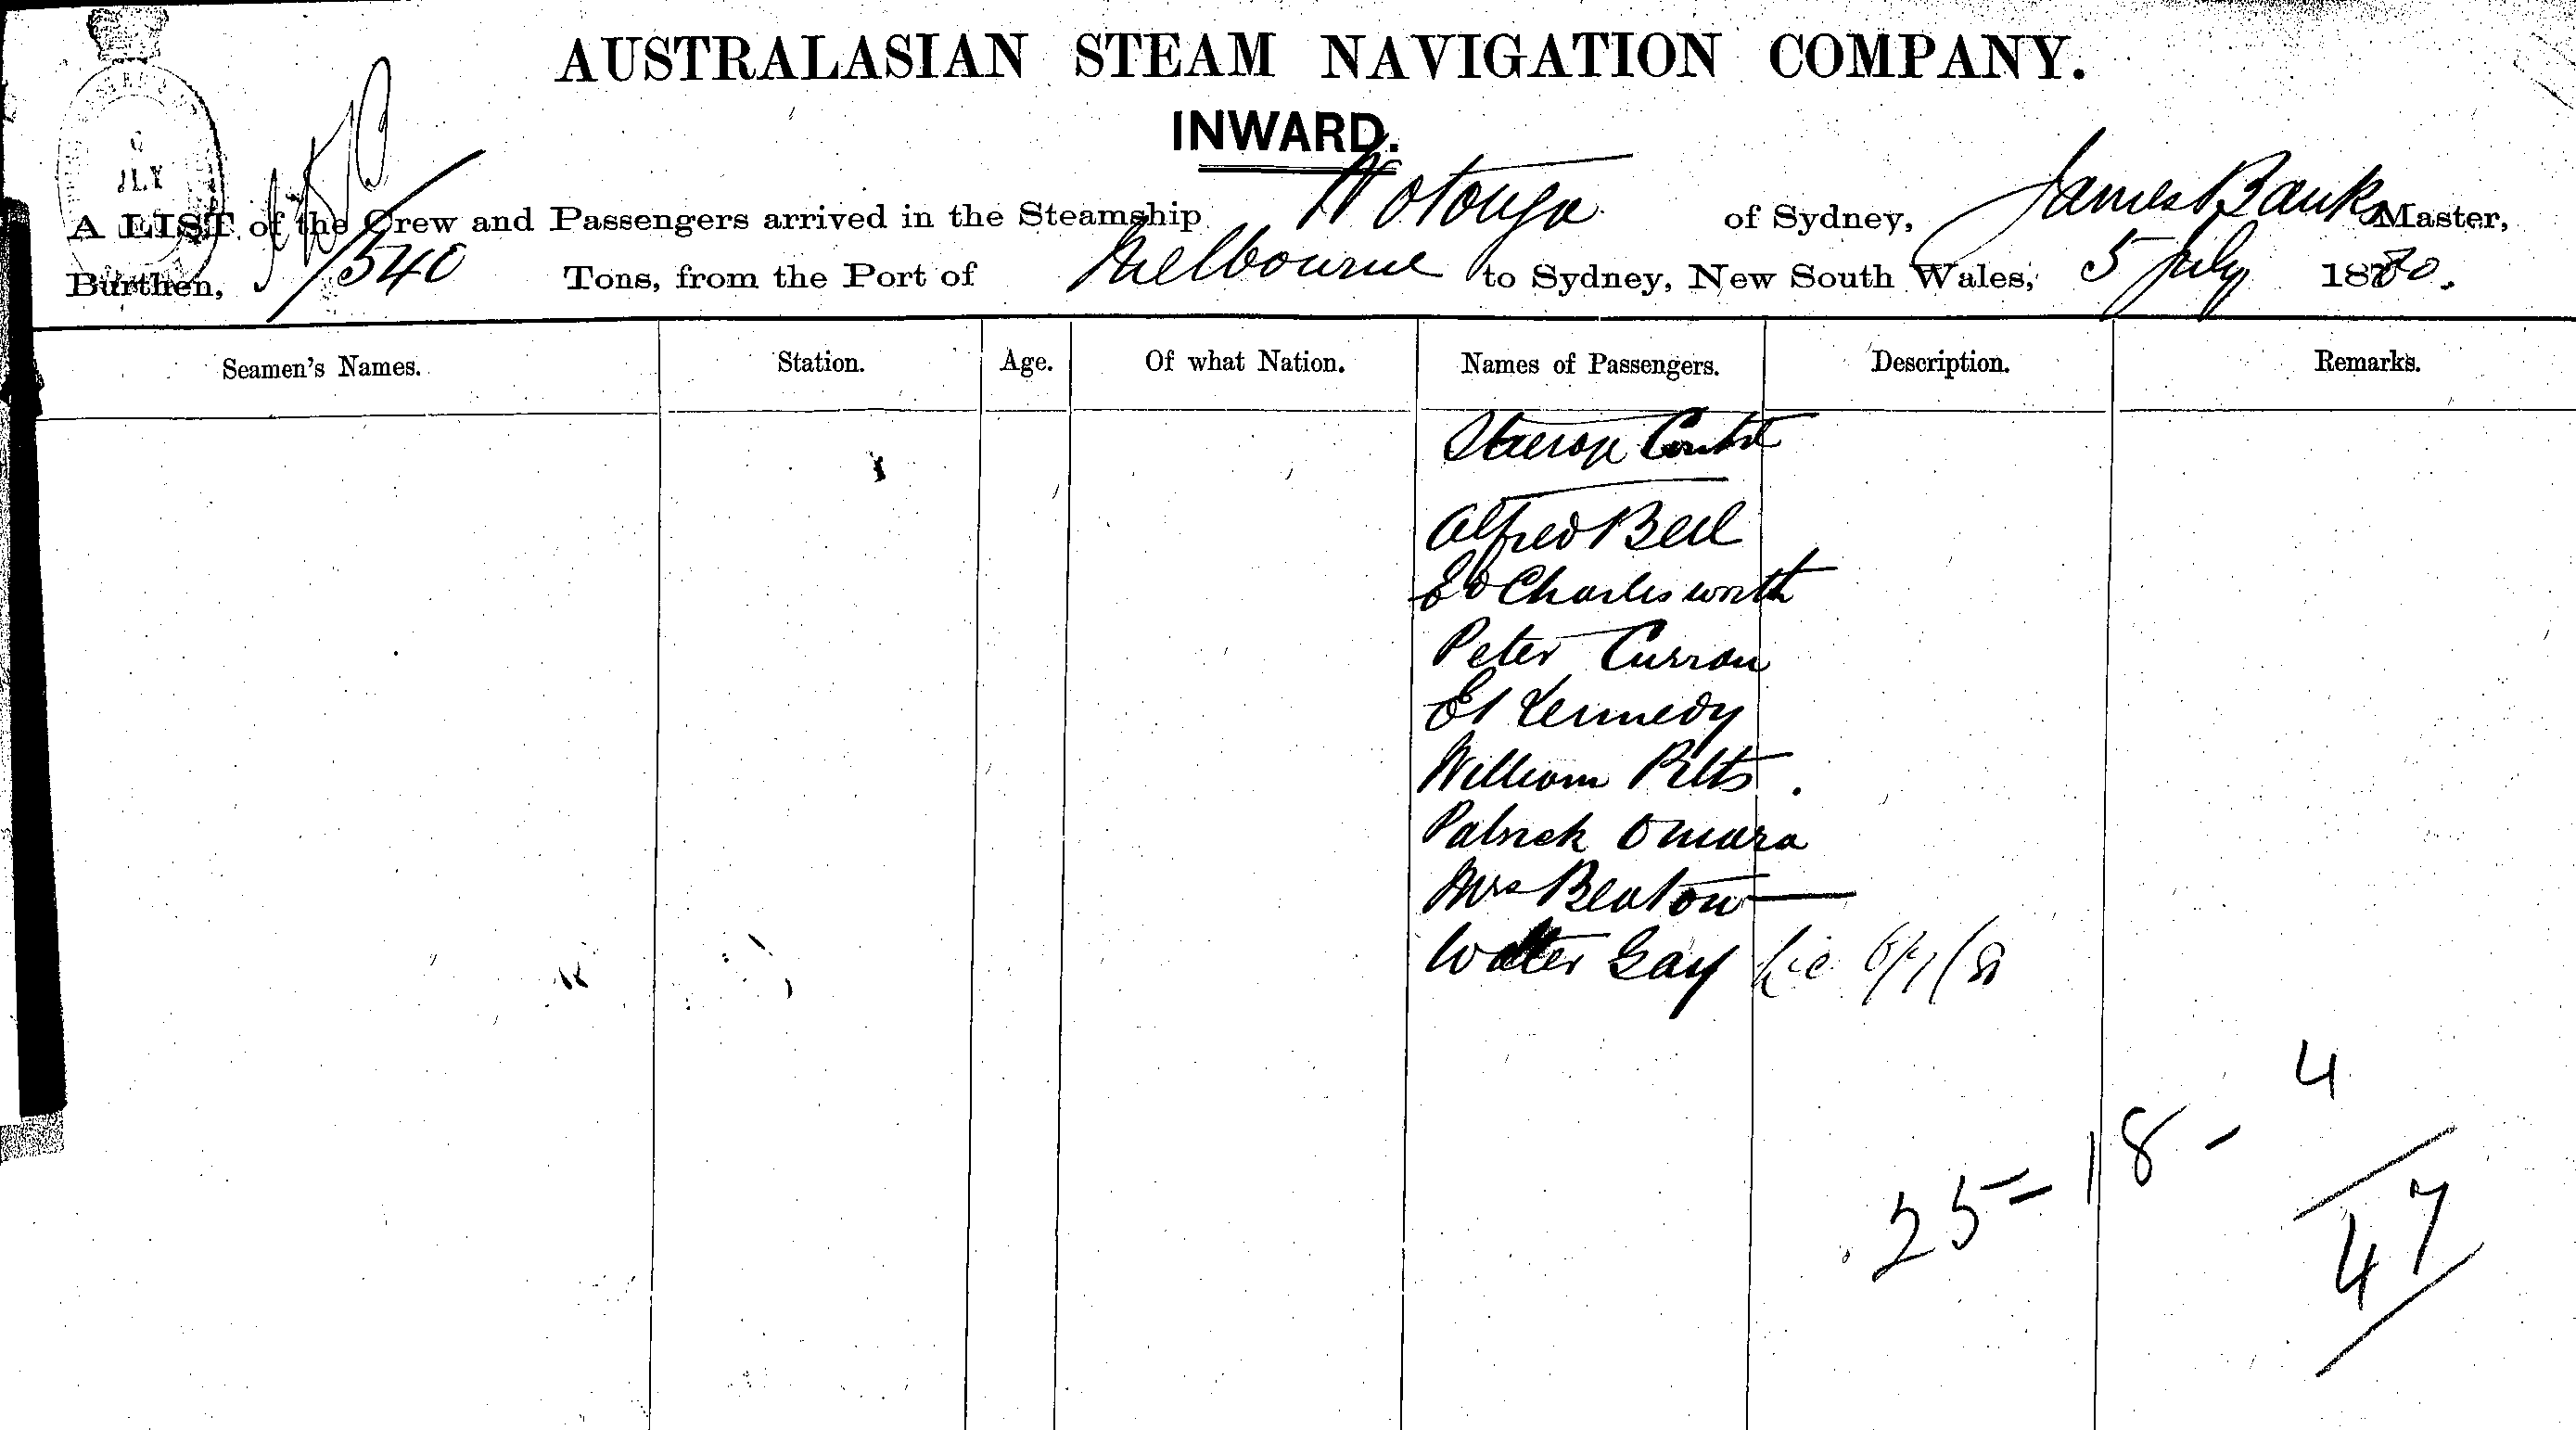 AUSTRALASIAN STEAM NAVIGATION COMPANY.
INWARD.
A LIST of the Crew and Passengers arrived in the Steamship Wotonga of Sydney, James Banks Master,
Burthen, 540 Tons, from the Port of Melbourne to Sydney, New South Wales, 5 July 1880.
Seamen's Names. Station. Age. Of what Nation. Names of Passengers. Description. Remarks.
Steerage Contd
Alfred Bell
Ed Charlesworth
Peter Curran
Ed Kennedy
William Pitts.
Patrick Omara
Mrs Beaton
Walter Gay
4
25 - 18 -
47